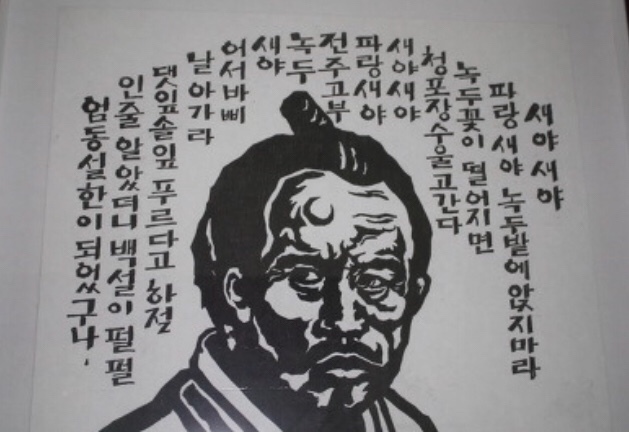 새야 새야
파랑 새야 녹두밭에 앉지마라
녹두꽃이 떨어지면
청포장수울고간다
새야새야
파랑새야
전주고부
녹두
새야
어서바삐
날아가라
댓잎솔잎 푸르다고 하절
인줄 알았더니 백설이 펄펄
엄동설한이 되었구나.